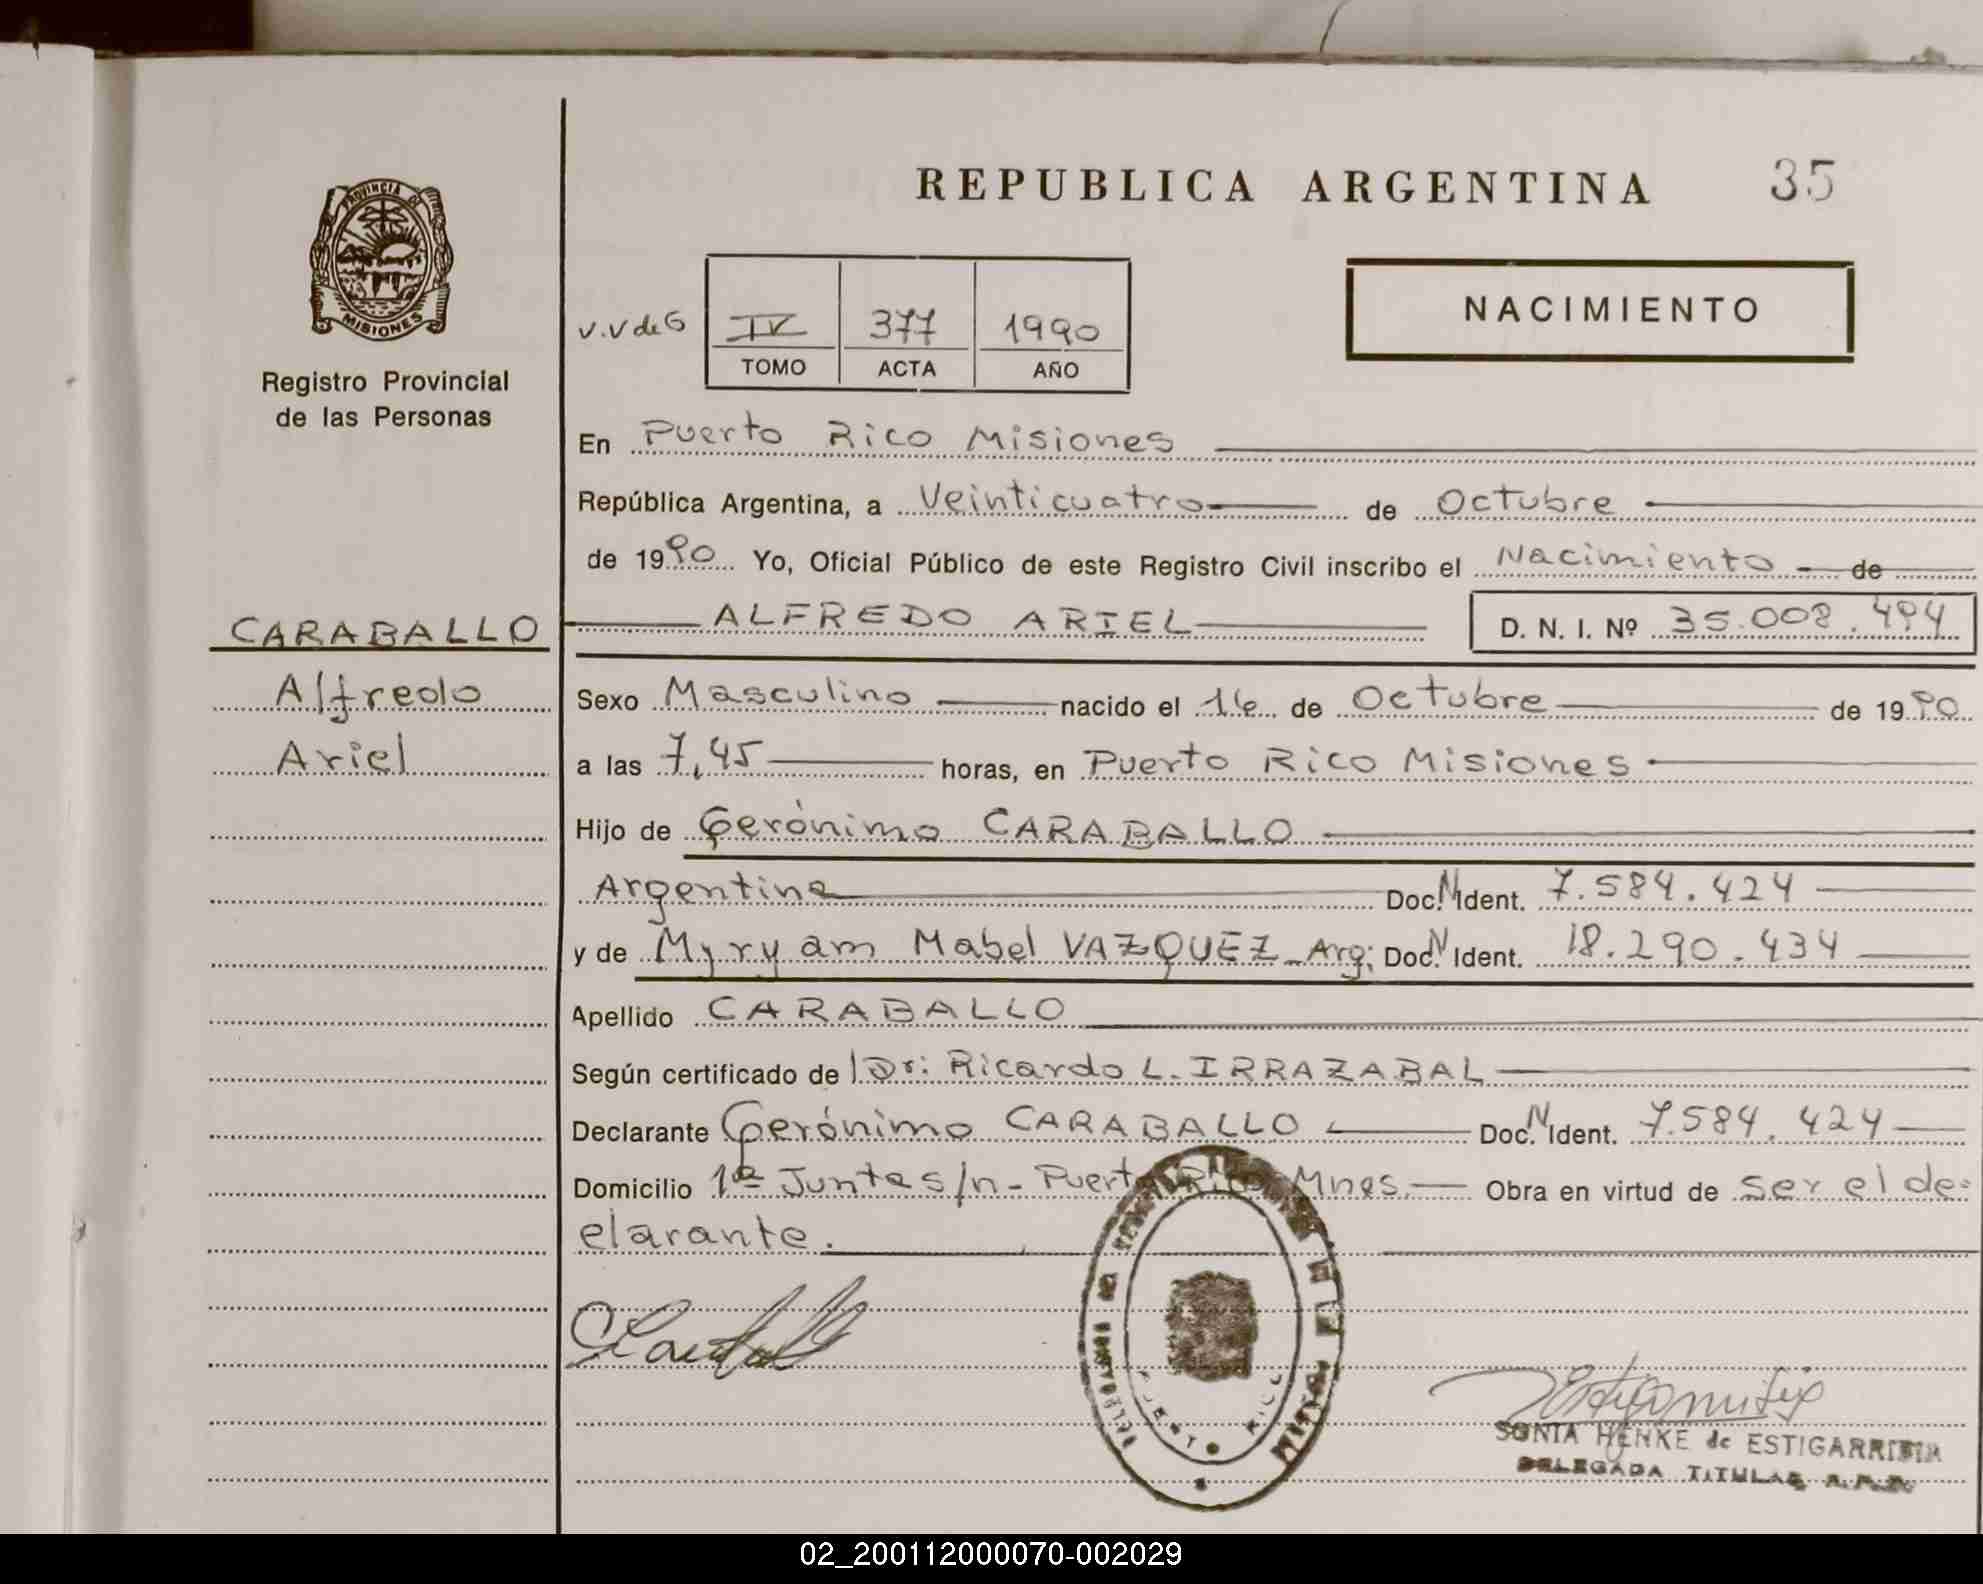 REPUBLICA ARGENTINA 35
PROVINCIA DE MISIONES
Registro Provincial
de las Personas
V.V de G
IV 377 1990
TOMO ACTA AÑO
NACIMIENTO
En Puerto Rico Misiones
República Argentina, a Veinticuatro de Octubre
de 1990 Yo, Oficial Público de este Registro Civil inscribo el Nacimiento de
CARABALLO
ALFREDO ARIEL D. N. I. Nº 35.008.494
Alfredo
Sexo Masculino nacido el 16 de Octubre de 1990
Ariel
a las 7,45 horas, en Puerto Rico Misiones
Hijo de Gerónimo CARABALLO
Argentina Doc. N Ident. 7.584.424
y de Myryam Mabel VAZQUEZ - Arg; Doc. N Ident. 18.290.434
Apellido CARABALLO
Según certificado de Dr: Ricardo L. IRRAZABAL
Declarante Gerónimo CARABALLO Doc. N Ident. 7.584.424
Domicilio 1ª Junta s/n - Puerto Rico Mnes. Obra en virtud de ser el de=
clarante.
SONIA HENKE de ESTIGARRIBIA
DELEGADA TITULAR
02_200112000070-002029